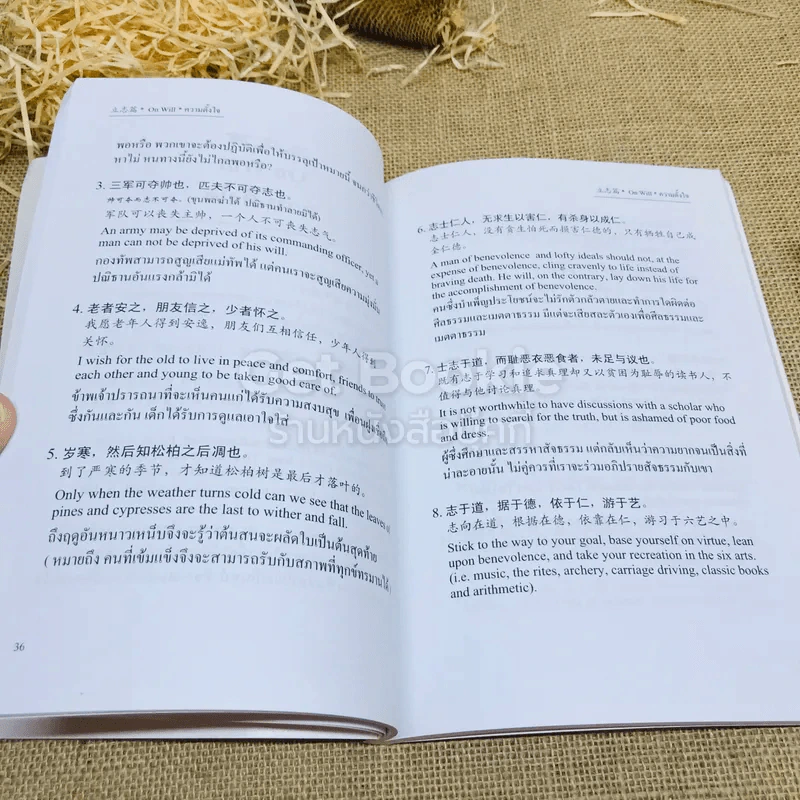 立志篇 • On Will • ความตั้งใจ
พอหรือ พวกเขาจะต้องปฏิบัติเพื่อให้บรรลุเป้าหมายนี้
หาไม่ หนทางนี้ยังไม่ไกลพอหรือ?
3. 三军可夺帅也，匹夫不可夺志也。
帅可夺而志不可夺。(ขุนพลฆ่าได้ ปณิธานทำลายมิได้)
军队可以丧失主帅，一个人不可丧失志气。
An army may be deprived of its commanding officer, yet a
man can not be deprived of his will.
กองทัพสามารถสูญเสียแม่ทัพได้ แต่คนเราจะสูญเสียความมุ่งมั่น
ปณิธานอันแรงกล้ามิได้
4. 老者安之，朋友信之，少者怀之。
我愿老年人得到安逸，朋友们互相信任，少年人得到
关怀。
I wish for the old to live in peace and comfort, friends to trust
each other and young to be taken good care of.
ข้าพเจ้าปรารถนาที่จะเห็นคนแก่ได้รับความสงบสุข เพื่อนฝูง
ซึ่งกันและกัน เด็กได้รับการดูแลเอาใจใส่
5. 岁寒，然后知松柏之后凋也。
到了严寒的季节，才知道松柏树是最后才落叶的。
Only when the weather turns cold can we see that the leaves of
pines and cypresses are the last to wither and fall.
ถึงฤดูอันหนาวเหน็บจึงจะรู้ว่าต้นสนจะผลัดใบเป็นต้นสุดท้าย
(หมายถึง คนที่เข้มแข็งจึงจะสามารถรับกับสภาพที่ทุกข์ทรมานได้)
36
立志篇 • On Will • ความตั้งใจ
6. 志士仁人，无求生以害仁，有杀身以成仁。
志士仁人，没有贪生怕死而损害仁德的，只有牺牲自己成
全仁德。
A man of benevolence and lofty ideals should not, at the
expense of benevolence, cling cravenly to life instead of
braving death. He will, on the contrary, lay down his life for
the accomplishment of benevolence.
คนซึ่งบำเพ็ญประโยชน์จะไม่รักตัวกลัวตายและทำการใดผิดต่อ
ศีลธรรมและเมตตาธรรม มีแต่จะเสียสละตัวเองเพื่อศีลธรรมและ
เมตตาธรรม
7. 士志于道，而耻恶衣恶食者，未足与议也。
既有志于学习和追求真理却又以贫困为耻辱的读书人，不
值得与他讨论真理
It is not worthwhile to have discussions with a scholar who
is willing to search for the truth, but is ashamed of poor food
and dress.
ผู้ซึ่งศึกษาและสรรหาสัจธรรม แต่กลับเห็นว่าความยากจนเป็นสิ่งที่
น่าละอายนั้น ไม่คู่ควรที่เราจะร่วมอภิปรายสัจธรรมกับเขา
8. 志于道，据于德，依于仁，游于艺。
志向在道，根据在德，依靠在仁，游习于六艺之中。
Stick to the way to your goal, base yourself on virtue, lean
upon benevolence, and take your recreation in the six arts.
(i.e. music, the rites, archery, carriage driving, classic books
and arithmetic).